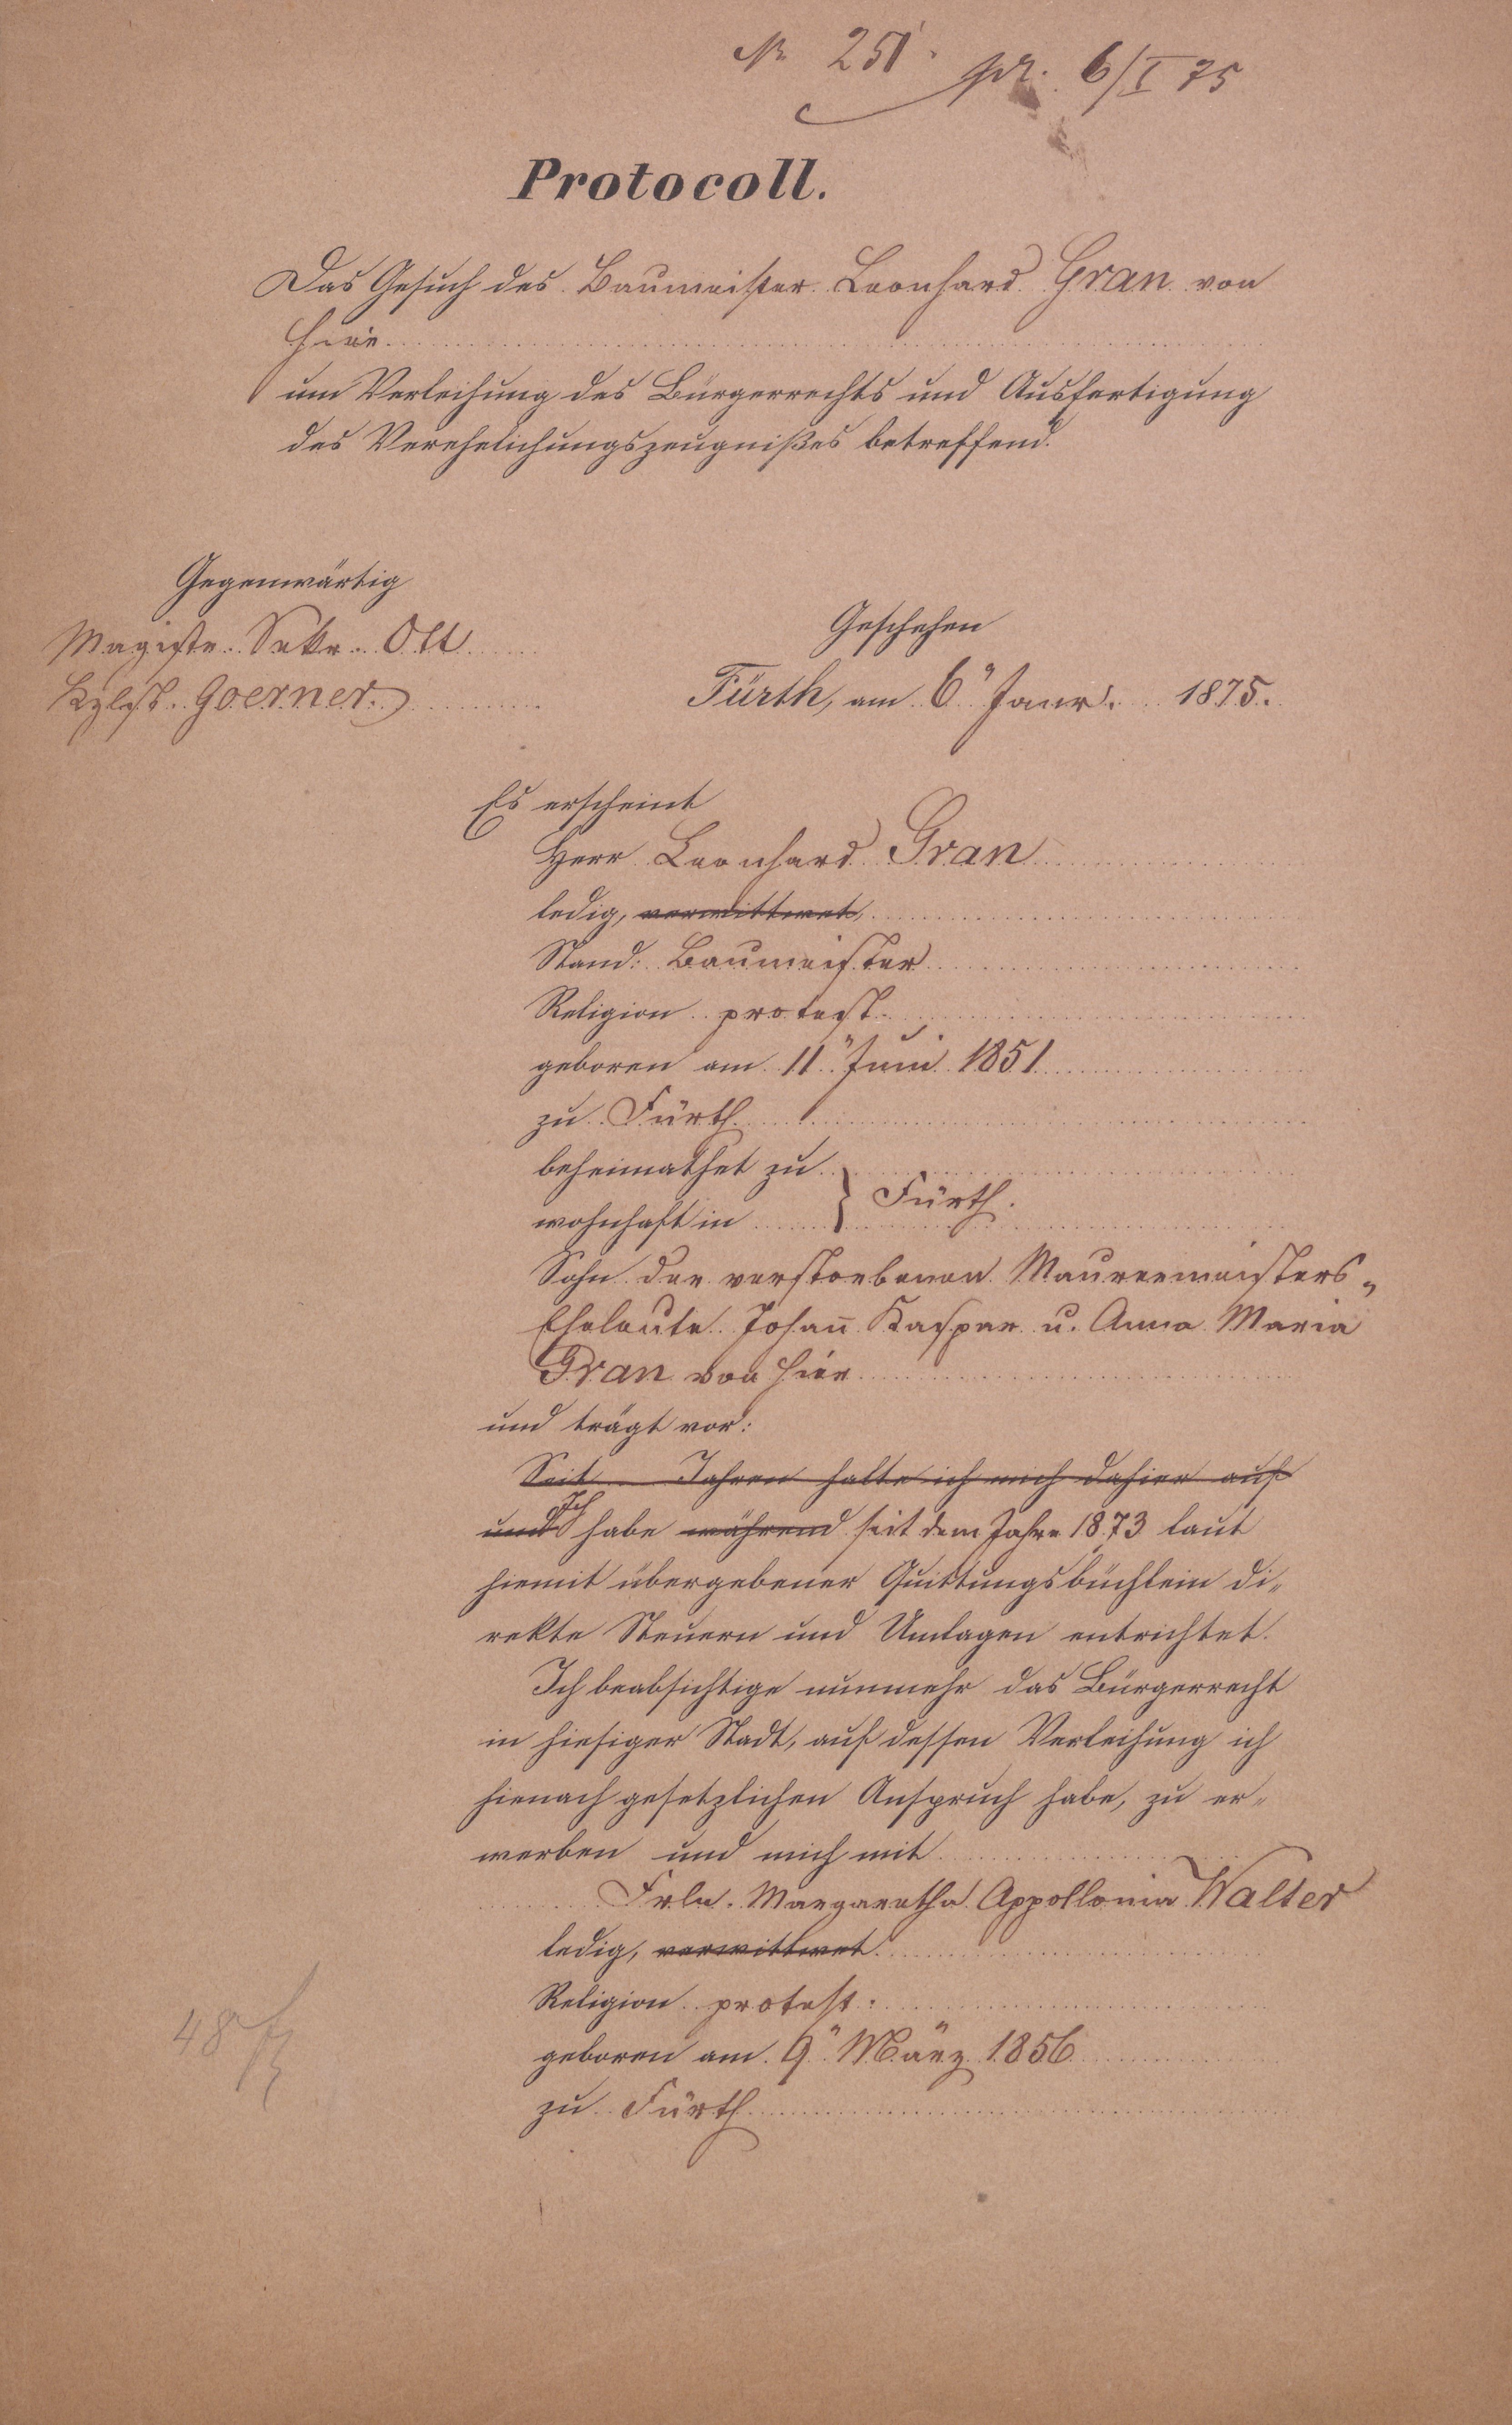 No 251. pr. 6/I 75
Protocoll.
Das Gesuch des Baumeister Leonhard Gran von
hier
um Verleihung des Bürgerrechts und Ausfertigung
des Verehelichungszeugnißes betreffend.
Gegenwärtig
Magistr. Sekr. Ott
Kzlist. Goerner.
Geschehen
Fürth, am 6" Janr. 1875.
Es erscheint
Herr Leonhard Gran
ledig, verwittwet,
Stand: Baumeister
Religion protest.
geboren am 11" Juni 1851
zu Fürth
beheimathet zu
wohnhaft in } Fürth.
Sohn der verstorbenen Maurermeisters-
Eheleute Johann Kaspar u. Anna Maria
Gran von hier
und trägt vor:
Seit Jahren halte ich mich dahier auf
und Ich habe während seit dem Jahre 1873 laut
hiemit übergebener Quittungsbüchlein di-
rekte Steuern und Umlagen entrichtet.
Ich beabsichtige nunmehr das Bürgerrecht
in hiesiger Stadt, auf dessen Verleihung ich
hienach gesetzlichen Anspruch habe, zu er-
werben und mich mit
Frln. Margaretha Appollonia Walter
ledig, verwittwet
Religion protest.
geboren am 9" März 1856
zu Fürth
48